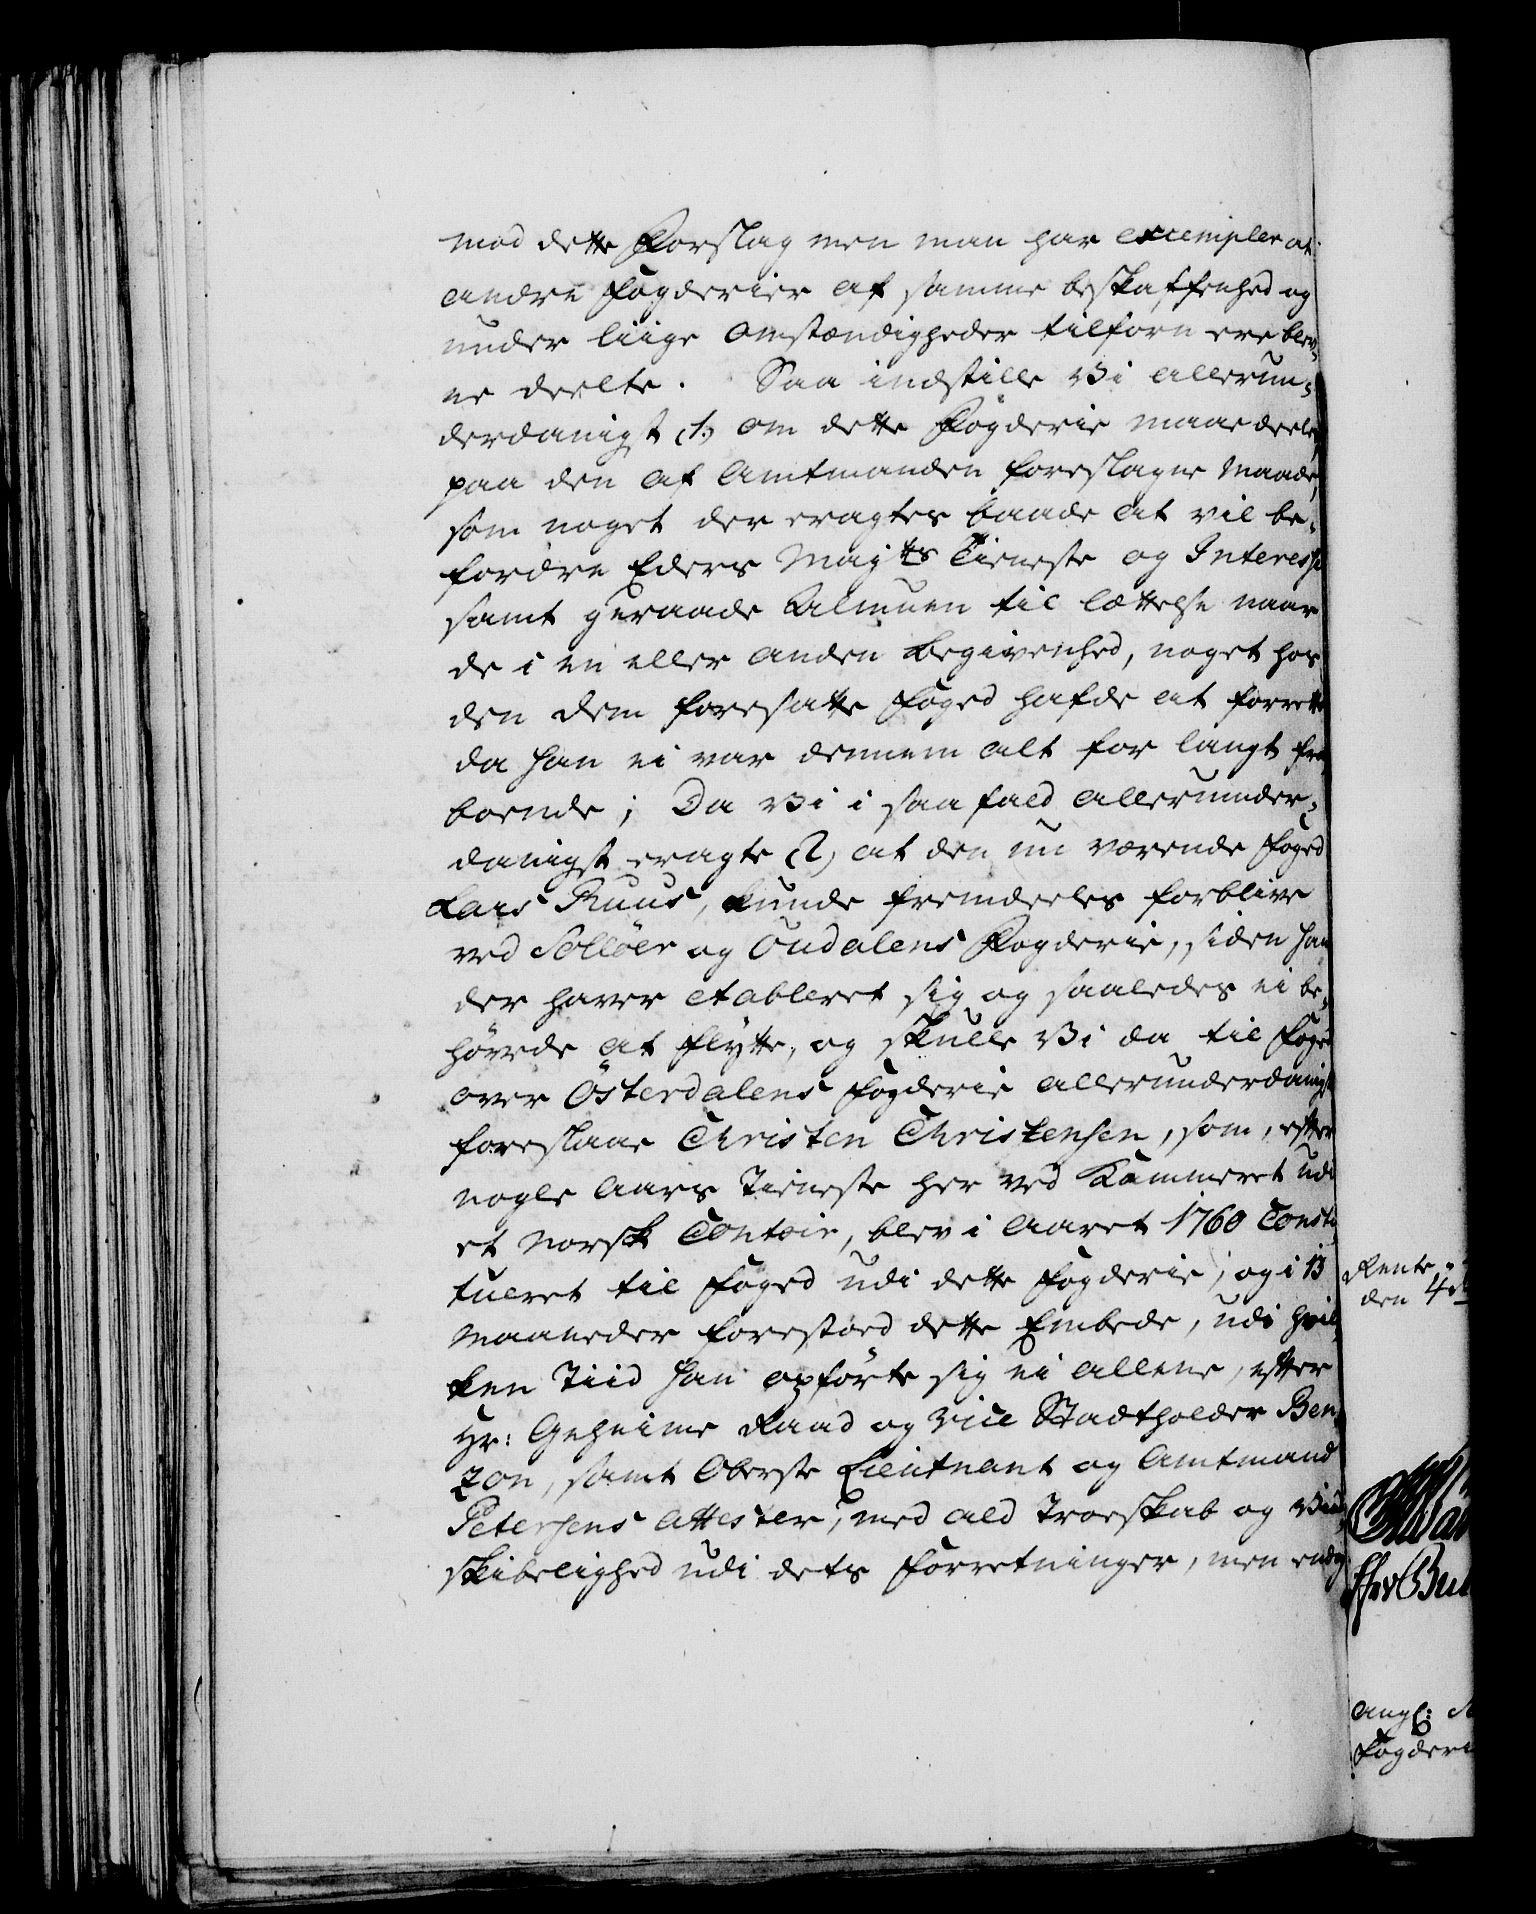 mod dette Forslag men man har exempler at
andre Fogderier af samme beskaffenhed og
under liige Omstændigheder tilforn ere blev-
ne deelte. Saa indstille Vi allerun-
derdanigst (1.) om dette Fogderie maae deeles
paa den af Amtmanden foreslagne Maade,
som noget der eragtes baade at vil be-
fordre Eders Mayts Tieneste og Interesse
samt geraade Almuen til lættelse naar
de i en eller anden Begivenhed, noget hos
den dem foresatte Foged hafde at forrette
da han ei var dennem alt for langt fra
boende; Da Vi i saa fald allerunder-
danigst eragte (2,) at den nu værende Foged
Lars Ruus, kunde fremdeeles forblive
ved Solløer og Oudalens Fogderie, siden han
der haver etableret sig og saaledes ei be-
høvede at flytte, og skulle Vi da til Foged
over Østerdalens Fogderie allerunderdanigst
foreslaae Christen Christensen, som, efter
nogle Aars Tieneste her ved Kammeret udi
et Norsk Contoir, blev i Aaret 1760 Consti-
tueret til Foged udi dette Fogderie, og i 13
Maaneder forestoed dette Embede, udi hvil-
ken Tiid han opførte sig ei allene, efter
Hr: Geheime Raad og Vice Stadtholder Ben-
zon, samt Oberste Lieutnant og Amtmand
Petersens Attester, med ald Troeskab og Vind-
skibelighed udi dets Forretninger, men endog
Rente-
den 4de
Angl:
Fogderi